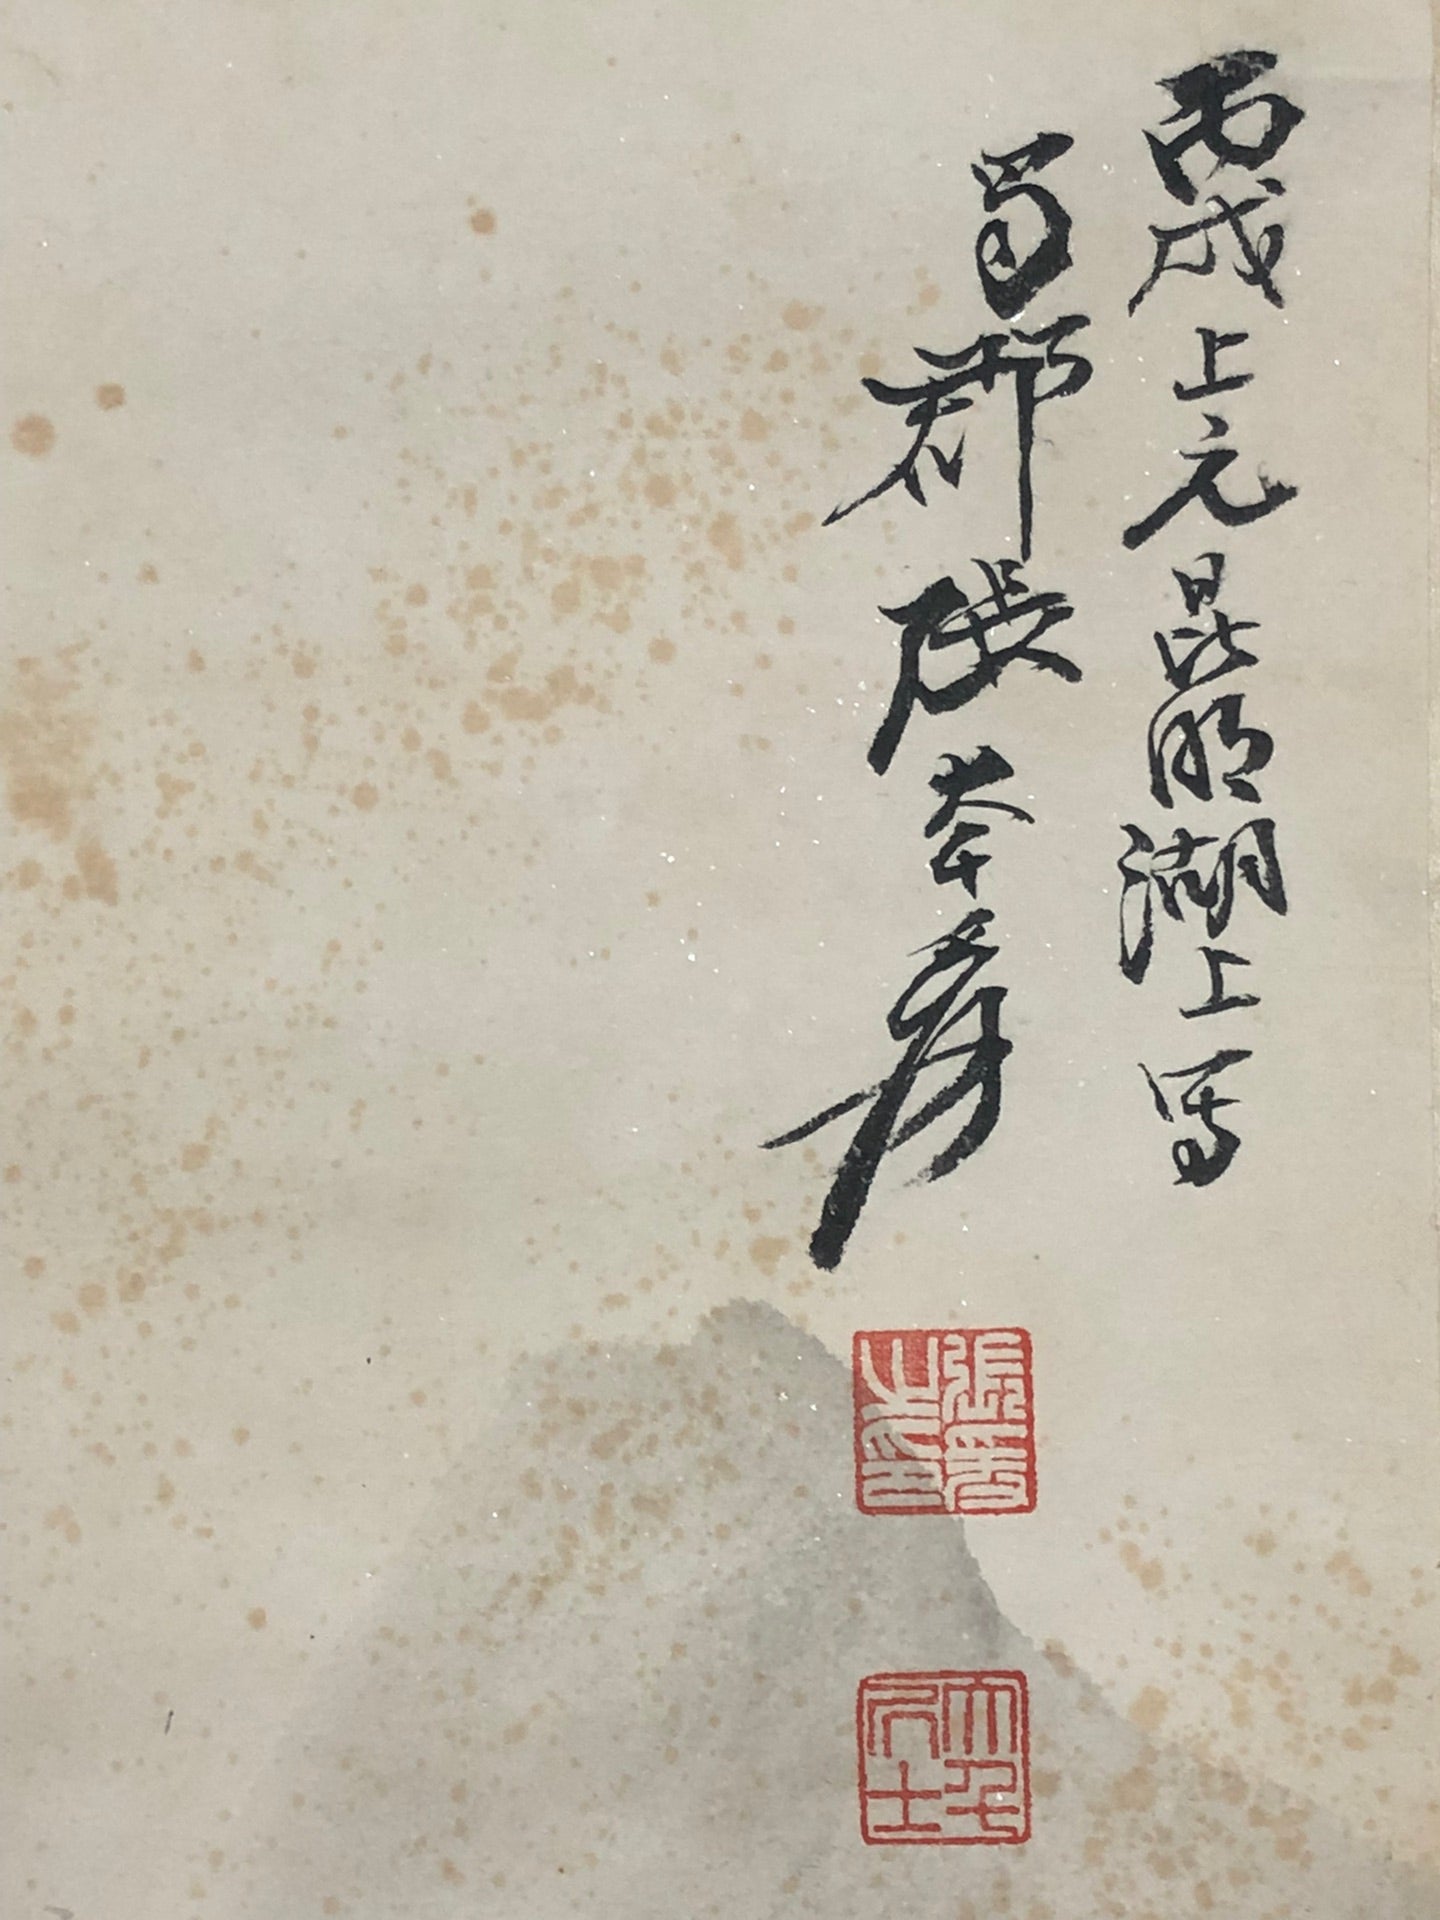 丙戌上元昆明湖上写
蜀郡張大千爰
張爰之印
大千居士